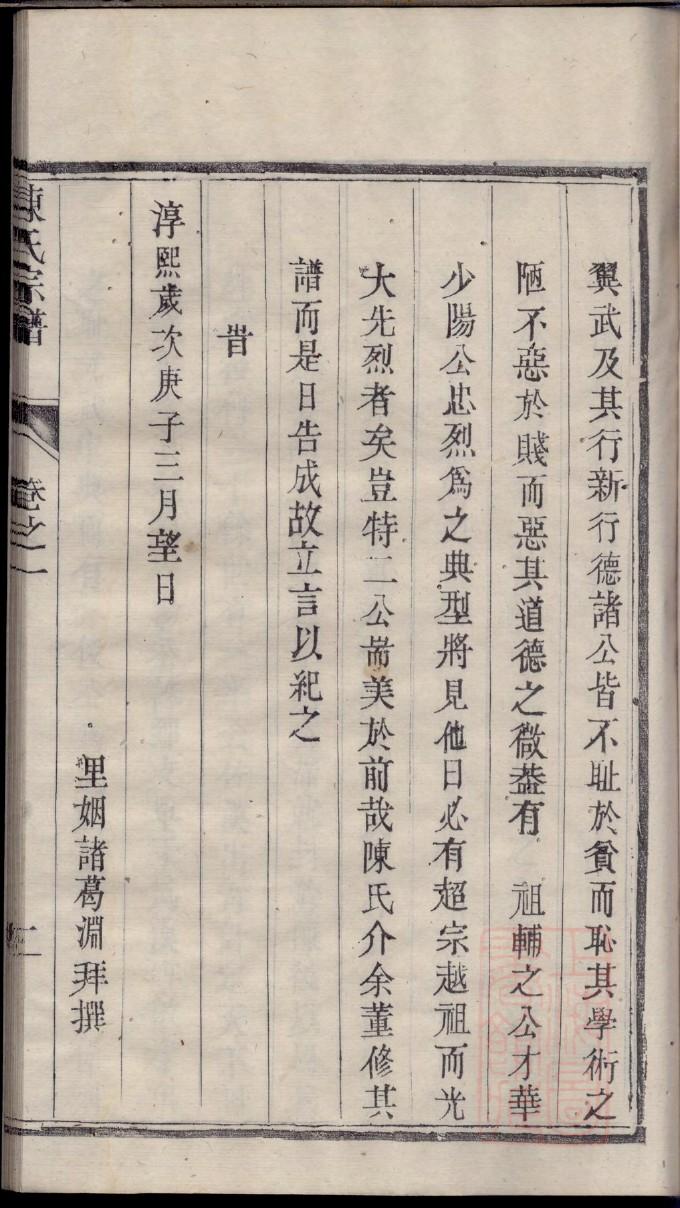 翼武及其行新行德諸公皆不耻於貧而恥其學術之
陋不惡於賤而惡其道德之微葢有 祖輔之公才華
少陽公忠烈爲之典型將見他日必有超宗越祖而光
大先烈者矣豈特二公耑美於前哉陳氏介余董修其
譜而是日告成故立言以紀之
旹
淳熙歲次庚子三月望日
里姻諸葛淵拜撰
陳氏宗譜
卷之一